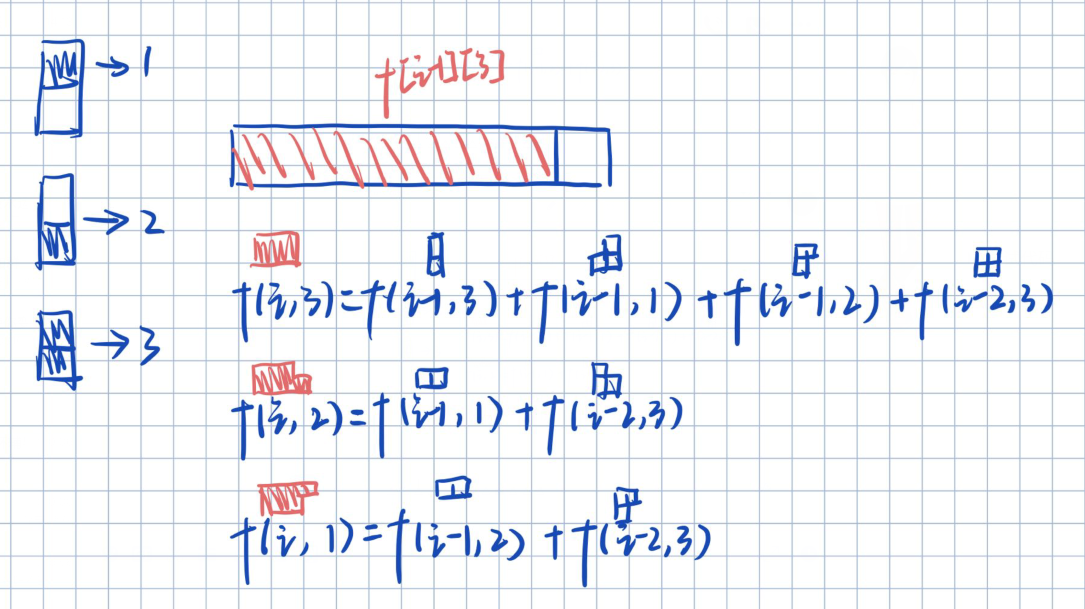 → 1
→ 2
→ 3
f[i-1][3]
f(i,3)=f(i-1,3)+f(i-1,1)+f(i-1,2)+f(i-2,3)
f(i,2)=f(i-1,1)+f(i-2,3)
f(i,1)=f(i-1,2)+f(i-2,3)